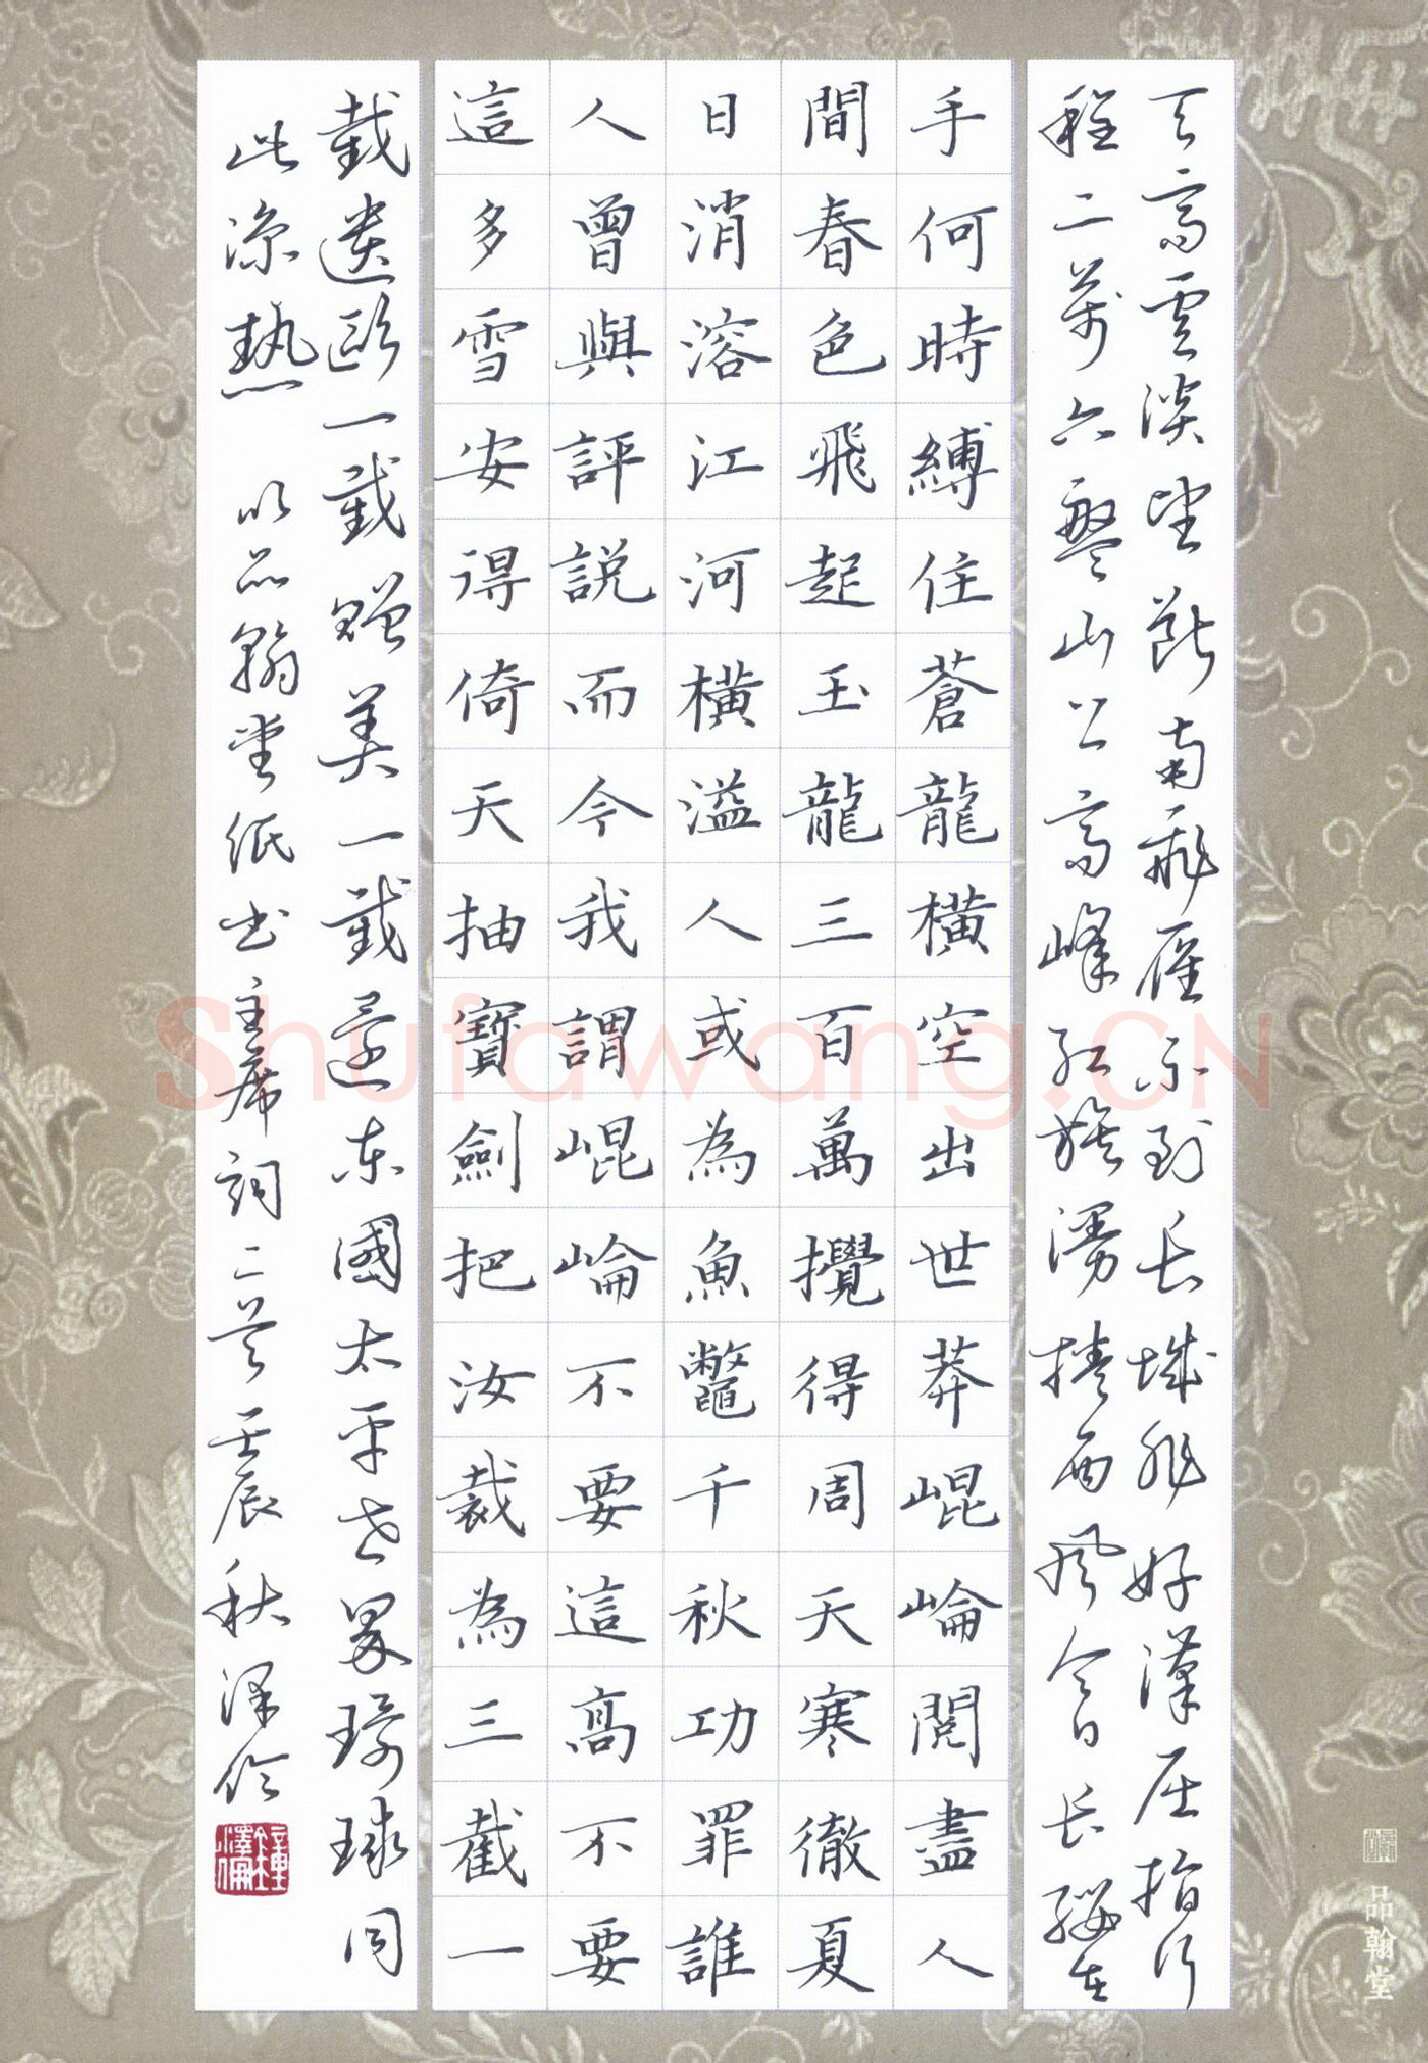 天高雲淡望斷南飛雁不到长城非好漢屈指行
程二萬六盤山上高峰红旗漫捲西风今日长纓在
手何時縛住蒼龍橫空出世莽崐崘閱盡人
間春色飛起玉龍三百萬攪得周天寒徹夏
日消溶江河橫溢人或為魚鼈千秋功罪誰
人曾與評説而今我謂崐崘不要這高不要
這多雪安得倚天抽寶劍把汝裁為三截一
截遺歐一截贈美一截還东國太平世界環球同
此涼熱 以品翰堂纸书主席詞二首壬辰秋澤倫
鍾澤倫
品翰堂
Shufawang.CN